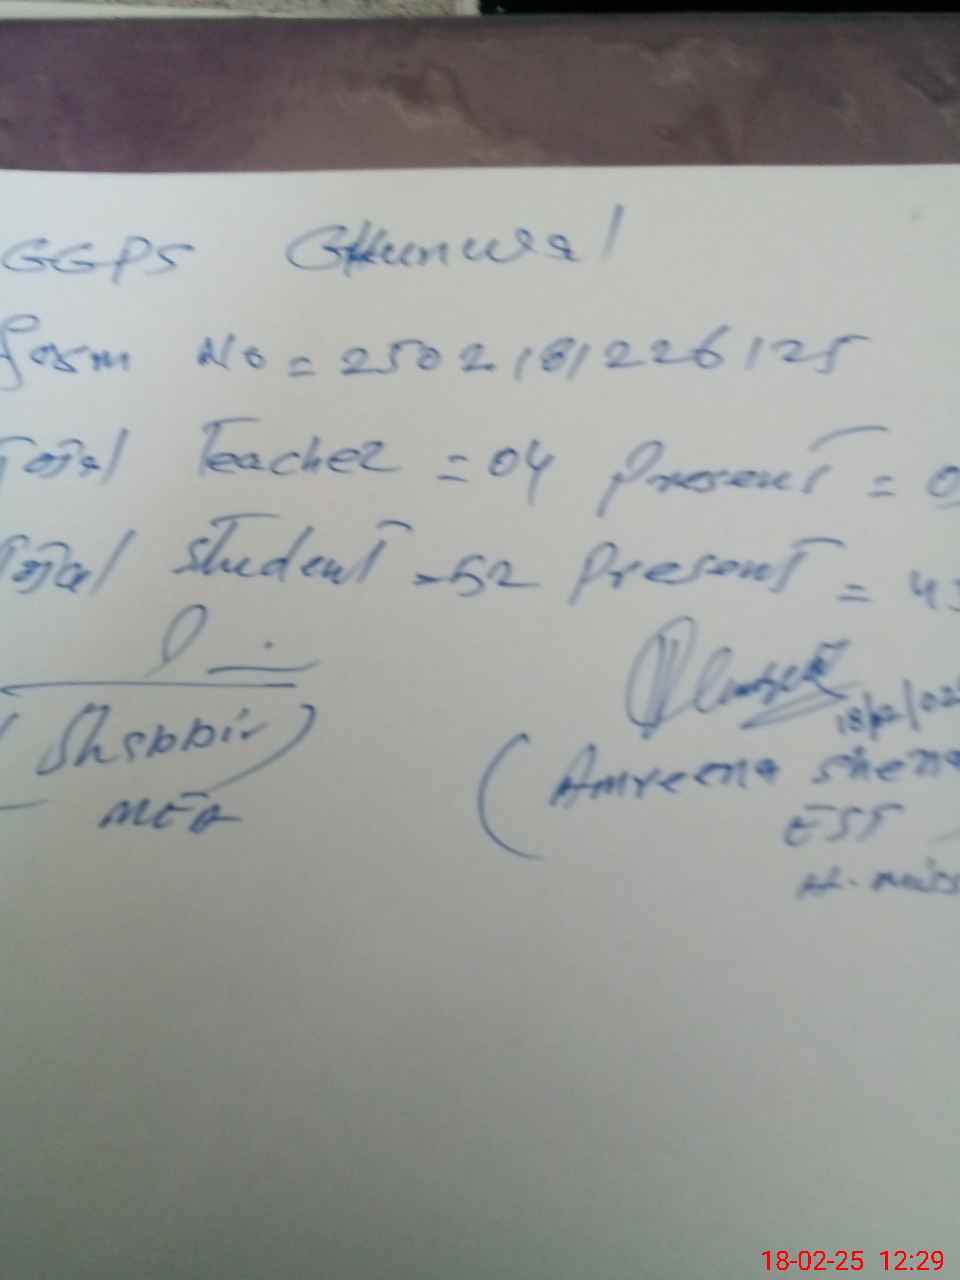 GGPS Ghunwal
form No = 2502181226125
Total Teacher = 04 Present = 0
Total Student = 52 Present = 43
(Shabbir)
MEA
18/02/02
(Amreena Shena
EST
18-02-25 12:29